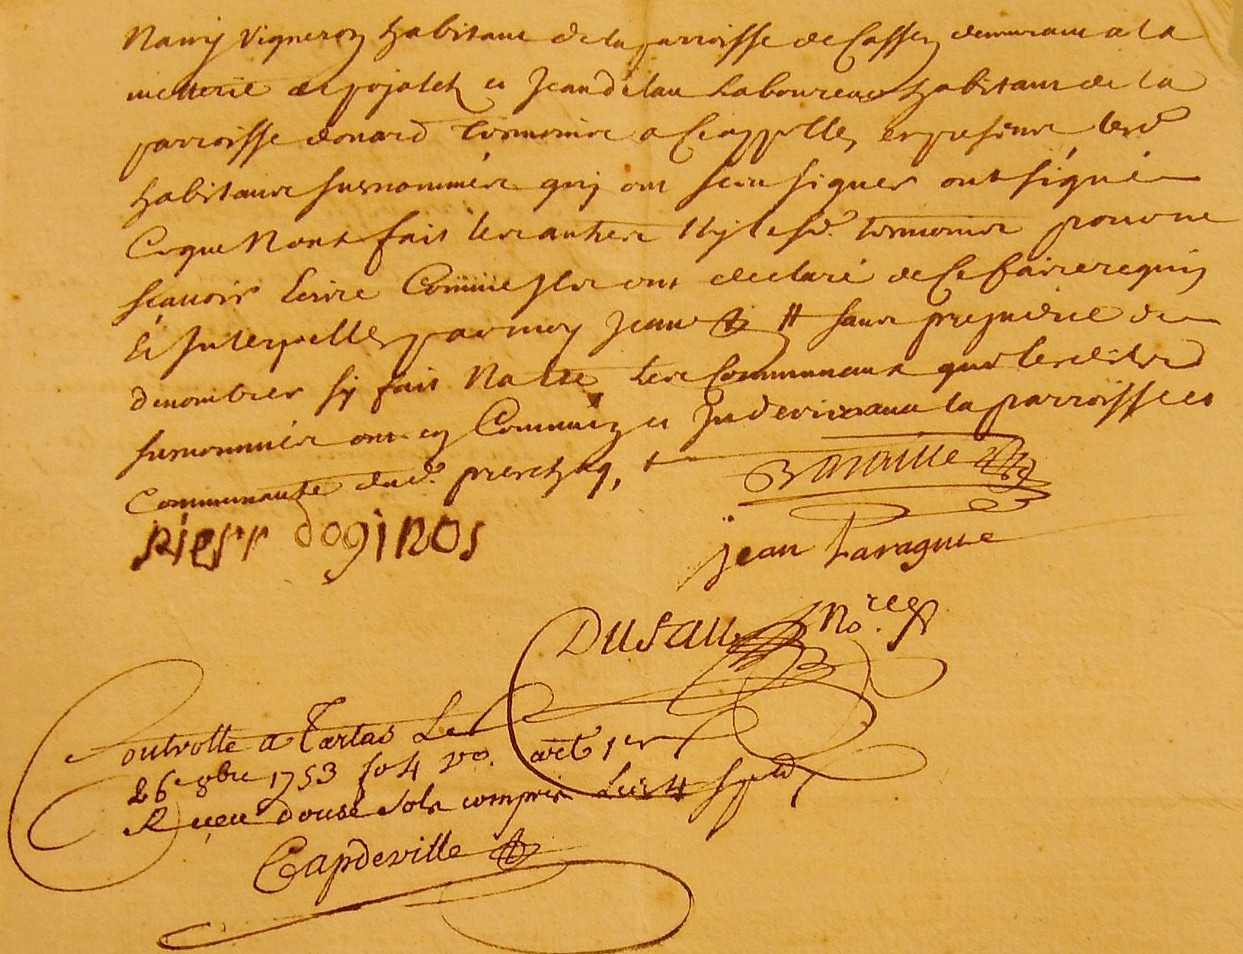 Vigneron habitant de la parroisse de Cassen demurant a la
metterie de pojalet et Jean delau Laboureur habitant de la
parroisse donard temoins a ce appelles
habitans surnommés quy ont sceu signer ont signé
Ce que Nont fait les autres Ny lesd. temoins pour ne
scavoir Ecrire Comme Ils ont declaré de Ce faire requis
Et Interpelles par moy Jean # sans prejudice de
denombrer sy fait Na esté Les Communaux que lesdits
surnommés ont en Commun et Indevis avec la parroisse et
Communauté dud. prerchaq,
Bataille
pierr doginos
jean Laragnne
Dusau No.re
Controlle a Tartas Le
26e 8bre 1753 fo 4 vo. art 1er
Receu douse sols compris Les 4 s pd
Capdeville